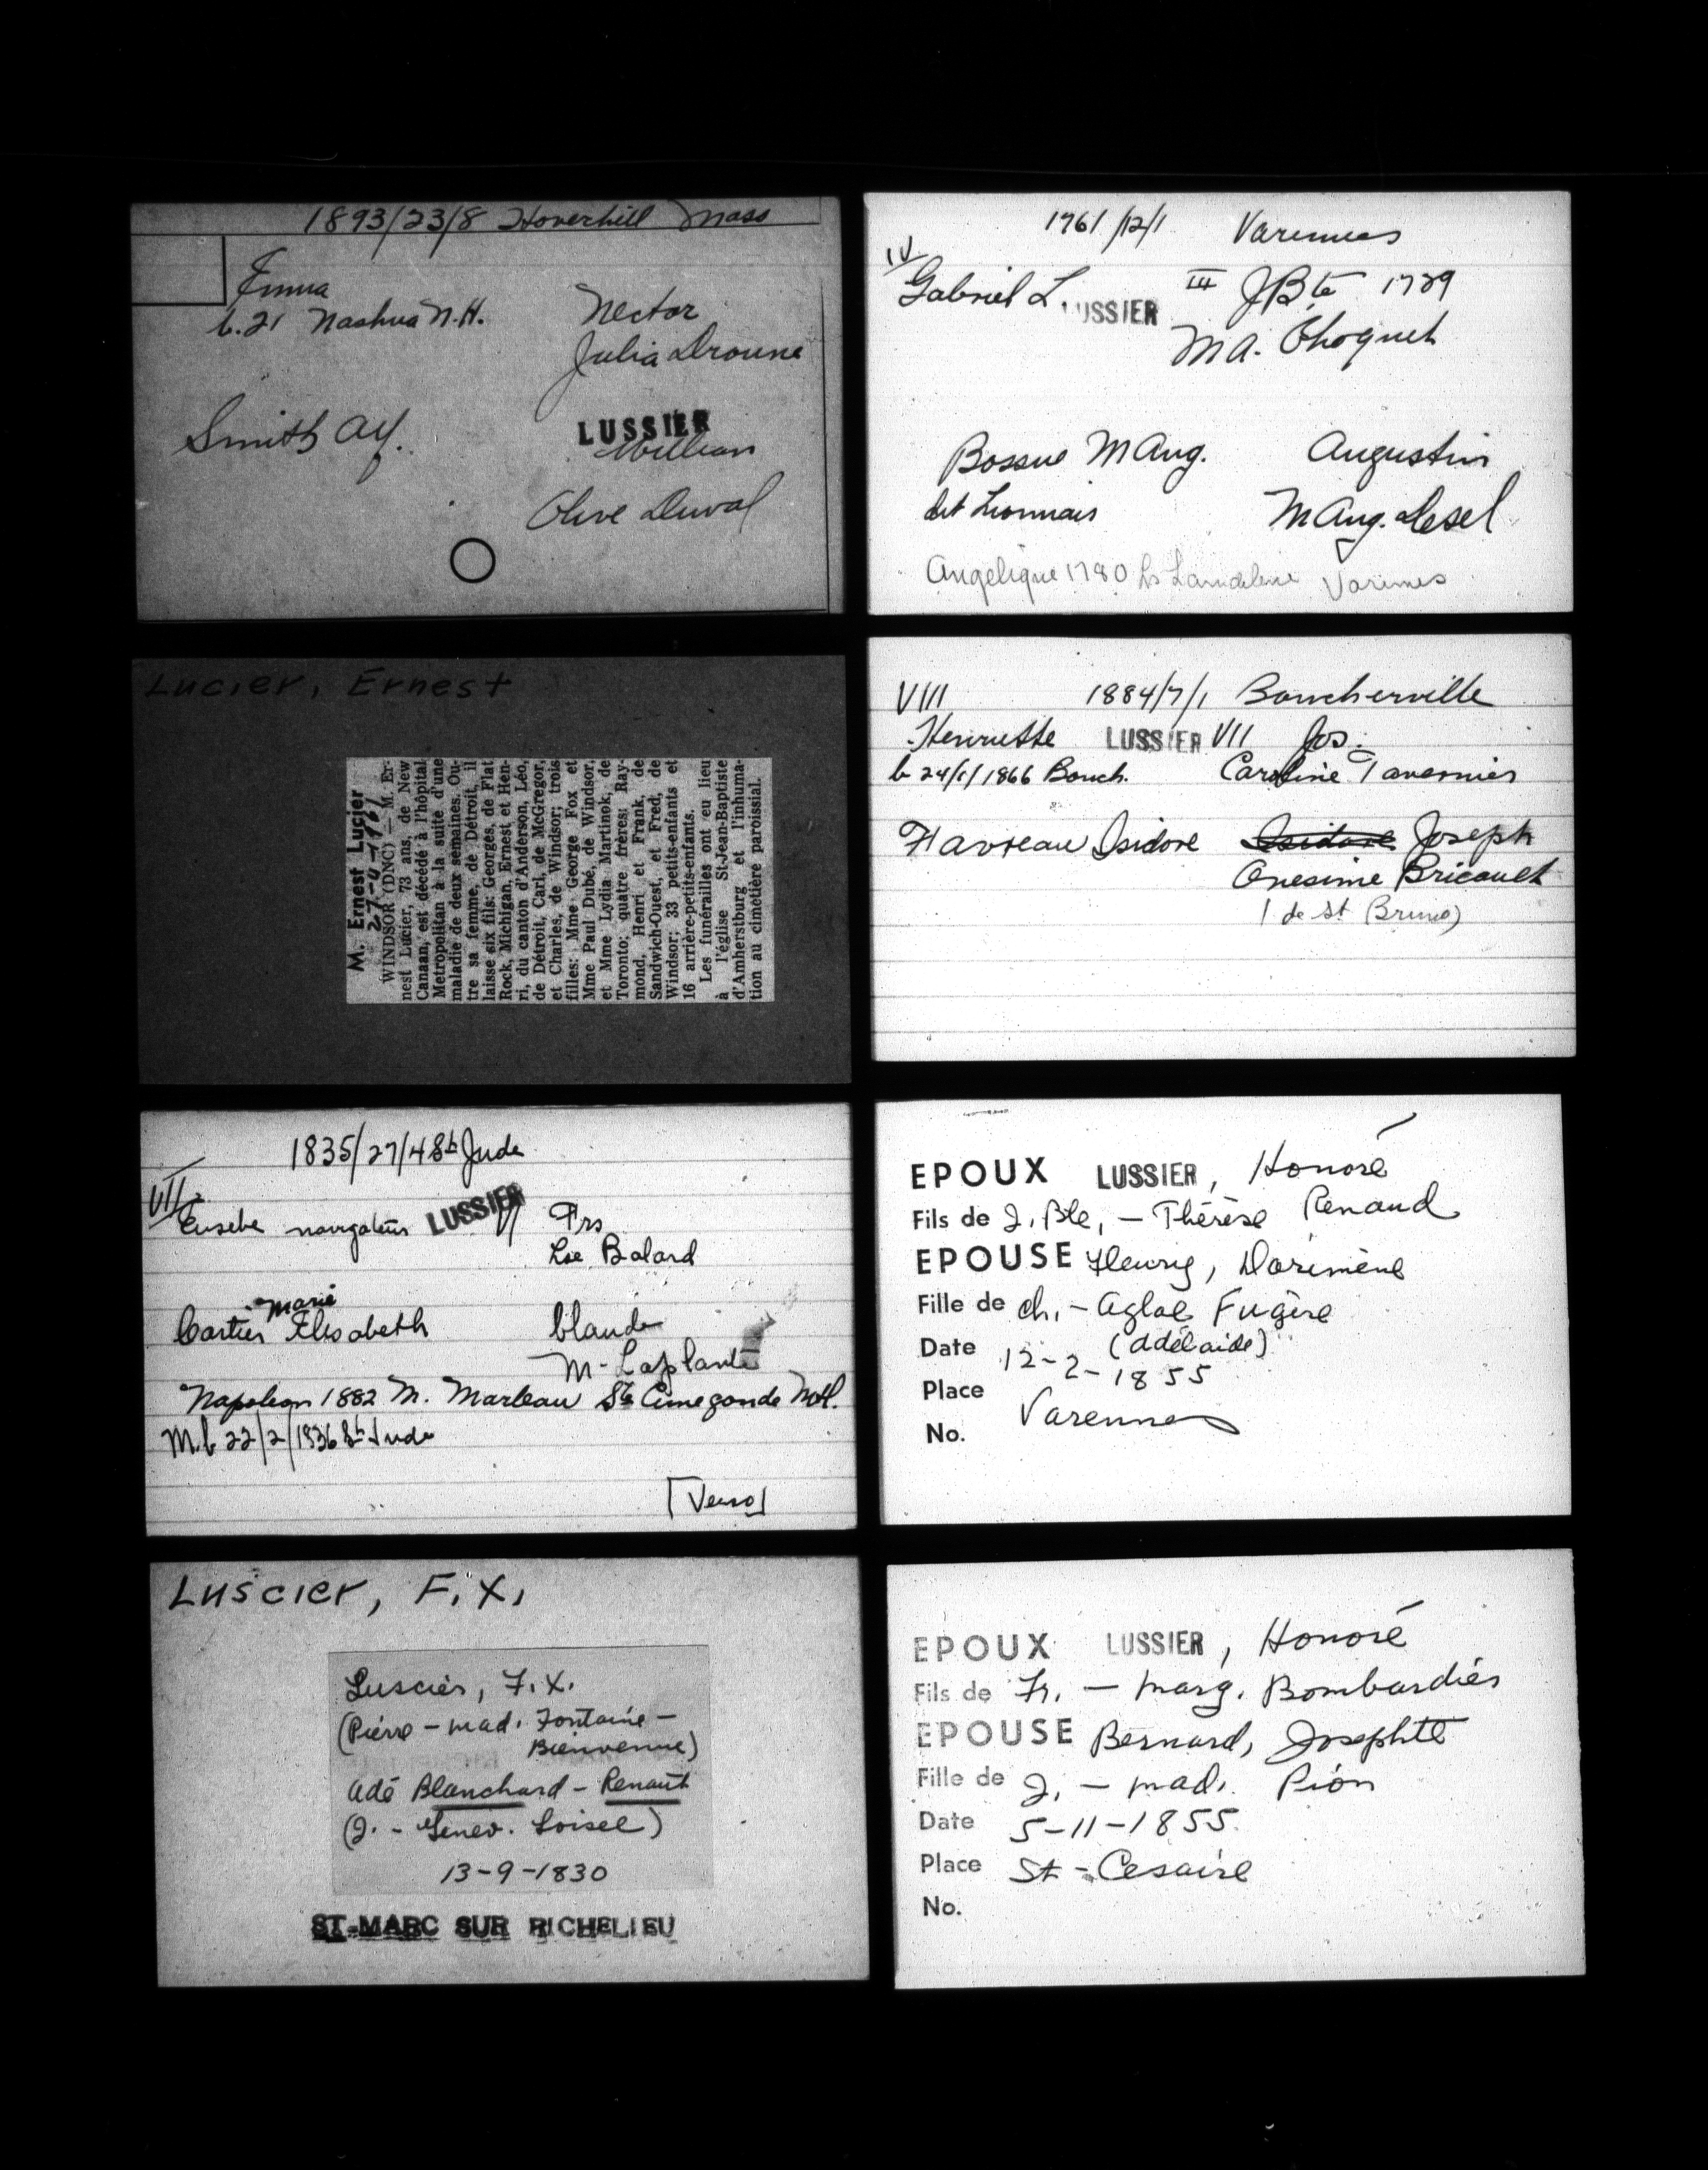 1893/23/8 Hoverhill Mass
Emma
b. 21 Nashua N.H.
Nector
Julia Droune
Smith Alf.
LUSSIER
William
Olive Duval
1761/12/1 Varennes
IV
Gabriel L. LUSSIER III JBte 1729
M A. Choquet
Bossue M Aug. Augustin
dit Lionnais M Aug. Lesel
Angelique 1780 Varennes
Lucier, Ernest
M. Ernest Lucier
WINDSOR (DNC) — M. Er-
nest Lucier, 73 ans, de New
Canaan, est décédé à l'hôpital
Metropolitan à la suite d'une
maladie de deux semaines. Ou-
tre sa femme, de Détroit, il
laisse six fils: Georges, de Flat
Rock, Michigan, Ernest et Hen-
ri, du canton d'Anderson, Léo,
de Détroit, Carl, de McGregor,
et Charles, de Windsor; trois
filles: Mme George Fox et
Mme Paul Dubé, de Windsor,
et Mme Lydia Martinok, de
Toronto; quatre frères: Ray-
mond, Henri et Frank, de
Sandwich-Ouest, et Fred, de
Windsor; 33 petits-enfants et
16 arrière-petits-enfants.
Les funérailles ont eu lieu
à l'église St-Jean-Baptiste
d'Amherstburg et l'inhuma-
tion au cimetière paroissial.
VIII 1884/7/1 Boucherville
Henriette LUSSIER VII Jos.
b 24/1/1866 Bouch. Caroline Tavernier
Favreau Isidore Isidore Joseph
Onesime Bricault
(de St Bruno)
1835/27/4 St Jude
VII
Eusebe navigateur LUSSIER VI Frs
Lse Balard
Marie
Cartier Elisabeth Claude
M - Laplante
Napoleon 1882 M. Marleau Ste Cunegonde Mtl.
M. b 22/2/1836 St Jude
[Verso]
EPOUX LUSSIER, Honoré
Fils de J. Bte, — Thérèse Renaud
EPOUSE Fleury, Dorimène
Fille de Ch. - Aglaé Fugère
(Adélaide)
Date 12-2-1855
Place Varennes
No.
Luscier, F. X.
Luscier, F. X.
(Pierre - Mad. Fontaine -
Bienvenue)
Adé Blanchard - Renault
(J. - Genev. Loisel)
13-9-1830
ST-MARC SUR RICHELIEU
EPOUX LUSSIER, Honoré
Fils de Fr. — Marg. Bombardier
EPOUSE Bernard, Josephte
Fille de J. — Mad. Pion
Date 5-11-1855
Place St-Cesaire
No.